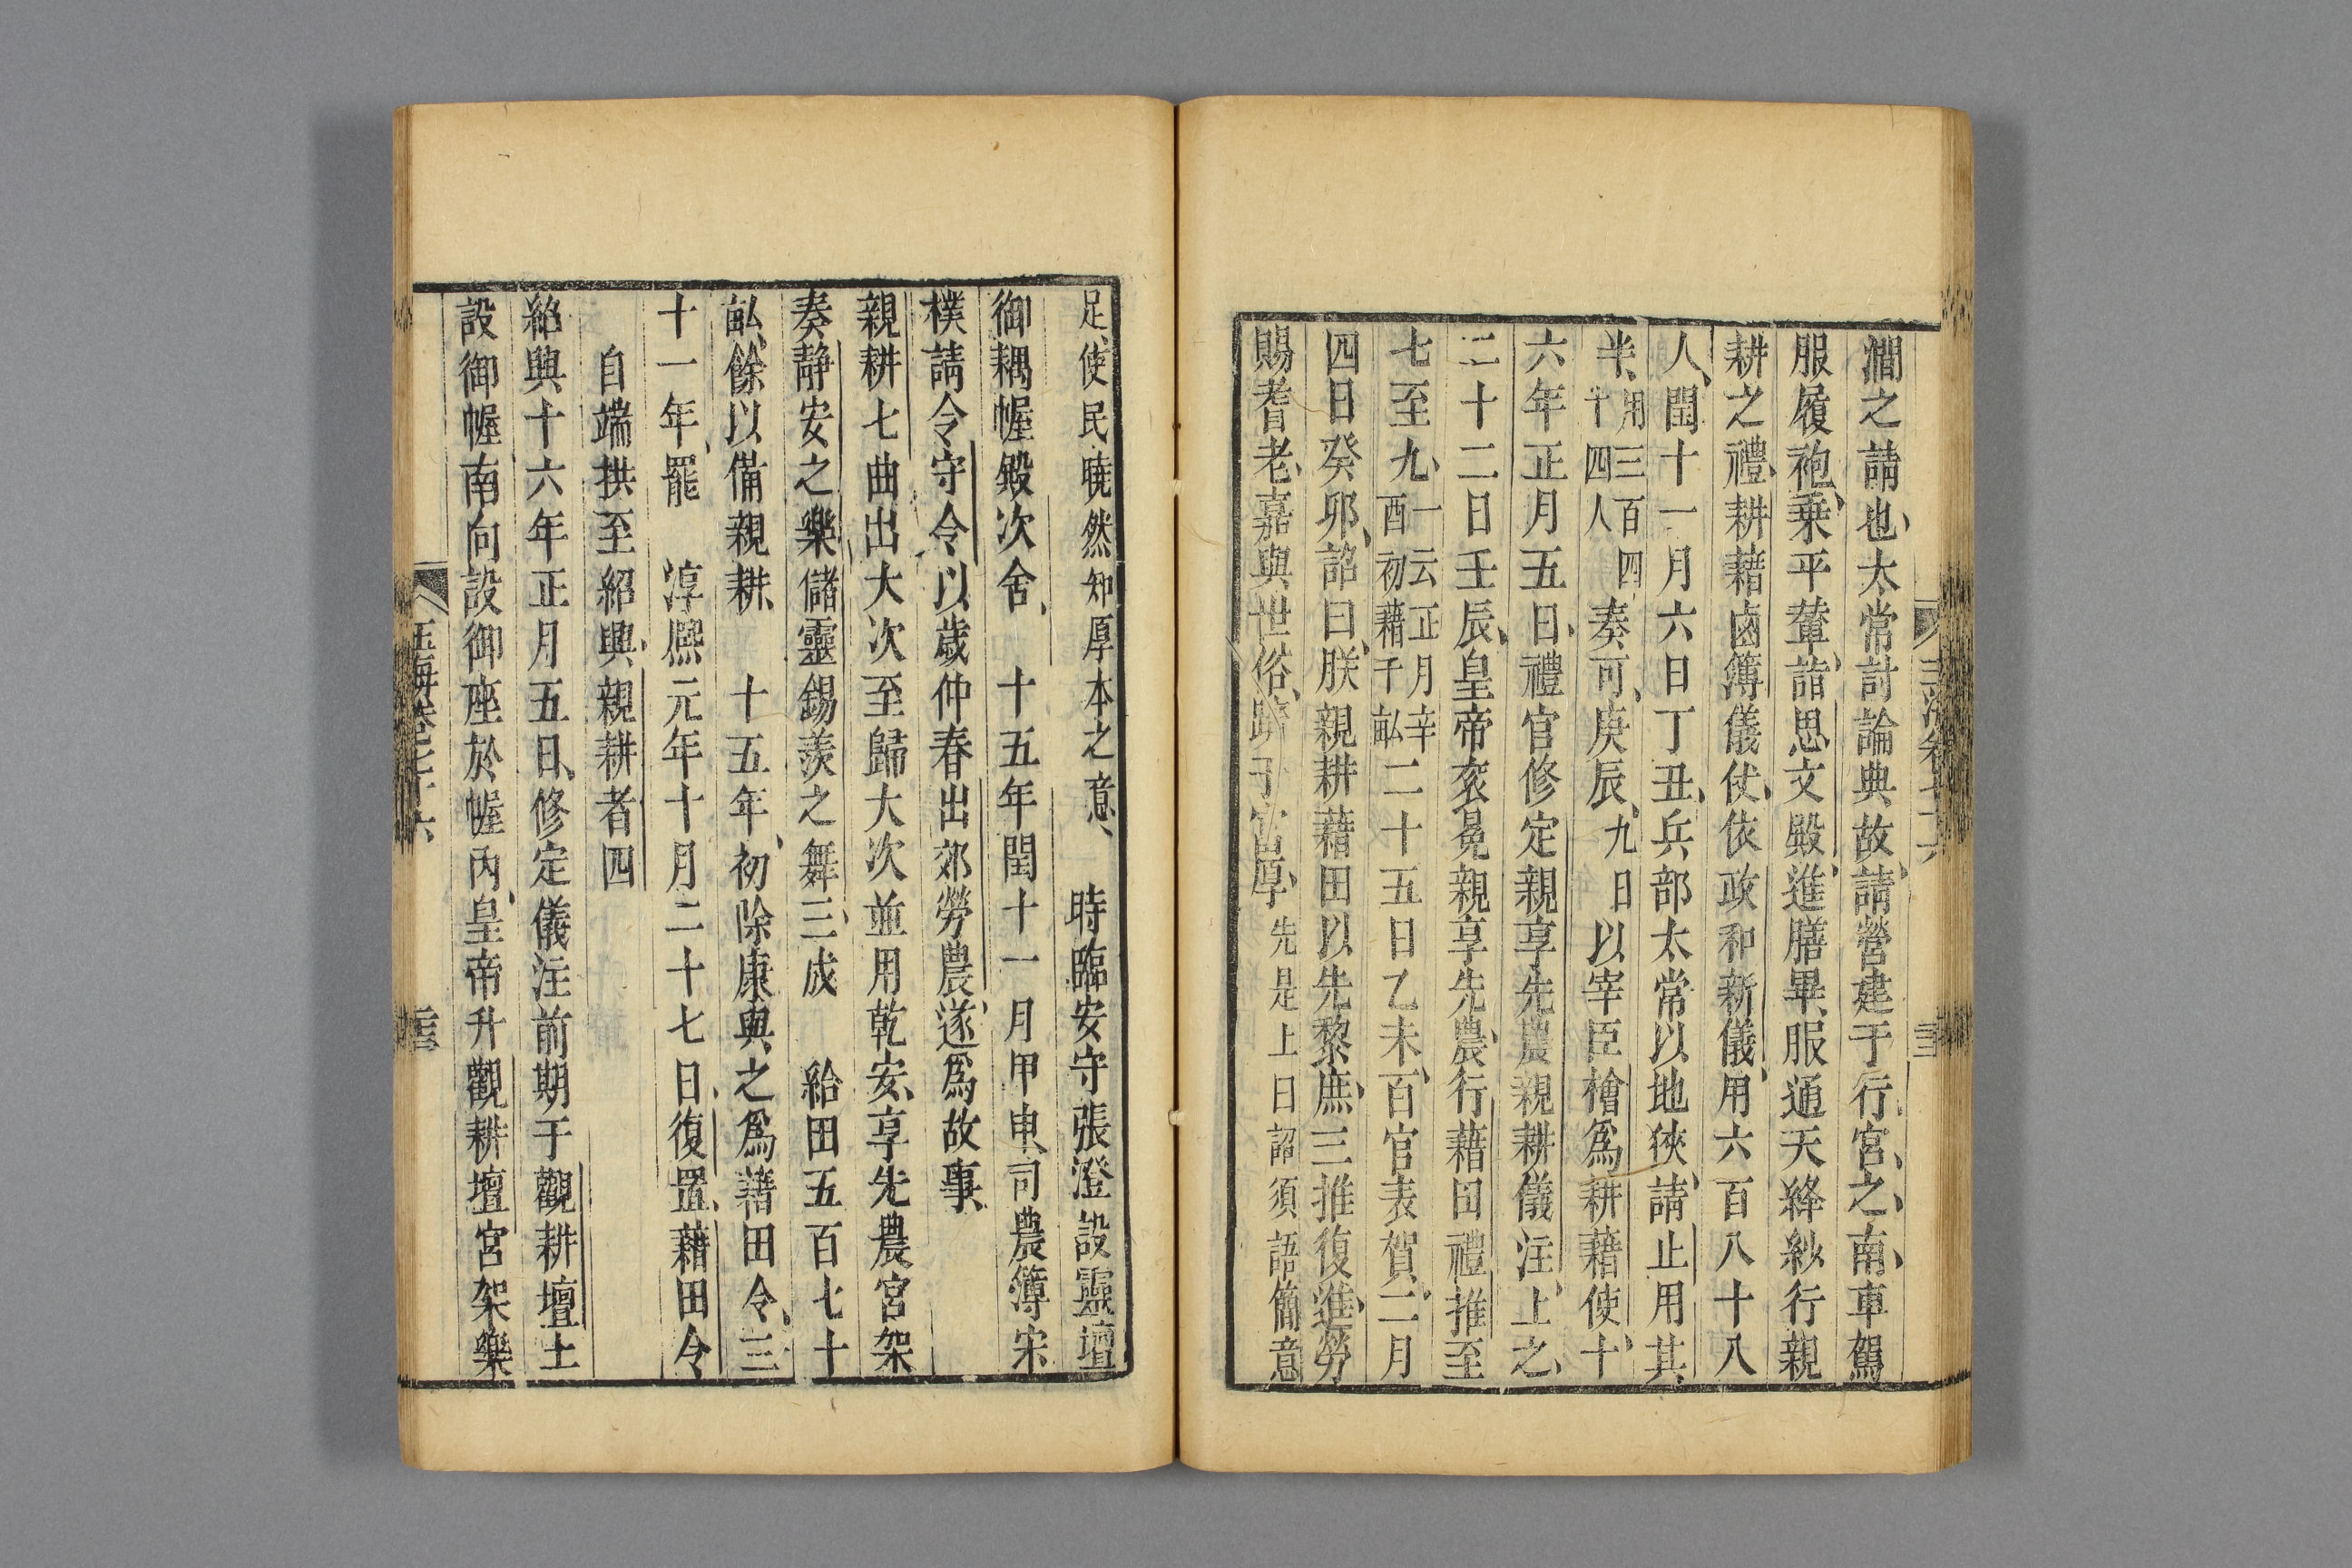 澗之請也太常討論典故請營建于行宮之南車駕
服履袍乗平輦詣思文殿進膳畢服通天絳紗行親
耕之禮耕藉鹵簿儀仗依政和新儀用六百八十八
人閏十一月六日丁丑兵部太常以地狹請止用其
半用三百四十四人奏可庚辰九日以宰臣檜爲耕藉使十
六年正月五日禮官修定親享先農親耕儀注上之
二十二日壬辰皇帝衮冕親享先農行藉田禮推至
七至九一云正月辛酉初藉千畝二十五日乙未百官表賀二月
四日癸卯詔曰朕親耕藉田以先黎庶三推復進勞
賜耆老嘉與世俗躋于富厚先是上日詔須語簡意
足使民曉然知厚本之意時臨安守張澄設靈壇
御耦幄殿次舍十五年閏十一月甲申司農簿宋
樸請令守令以歲仲春出郊勞農遂爲故事
親耕七曲出大次至歸大次並用乾安享先農宮架
奏靜安之樂儲靈錫羨之舞三成給田五百七十
畝餘以備親耕十五年初除康與之爲藉田令三
十一年罷淳熙元年十月二十七日復置藉田令
自端拱至紹興親耕者四
紹興十六年正月五日修定儀注前期于觀耕壇上
設御幄南向設御座於幄內皇帝升觀耕壇宮架樂
玉海卷七十六